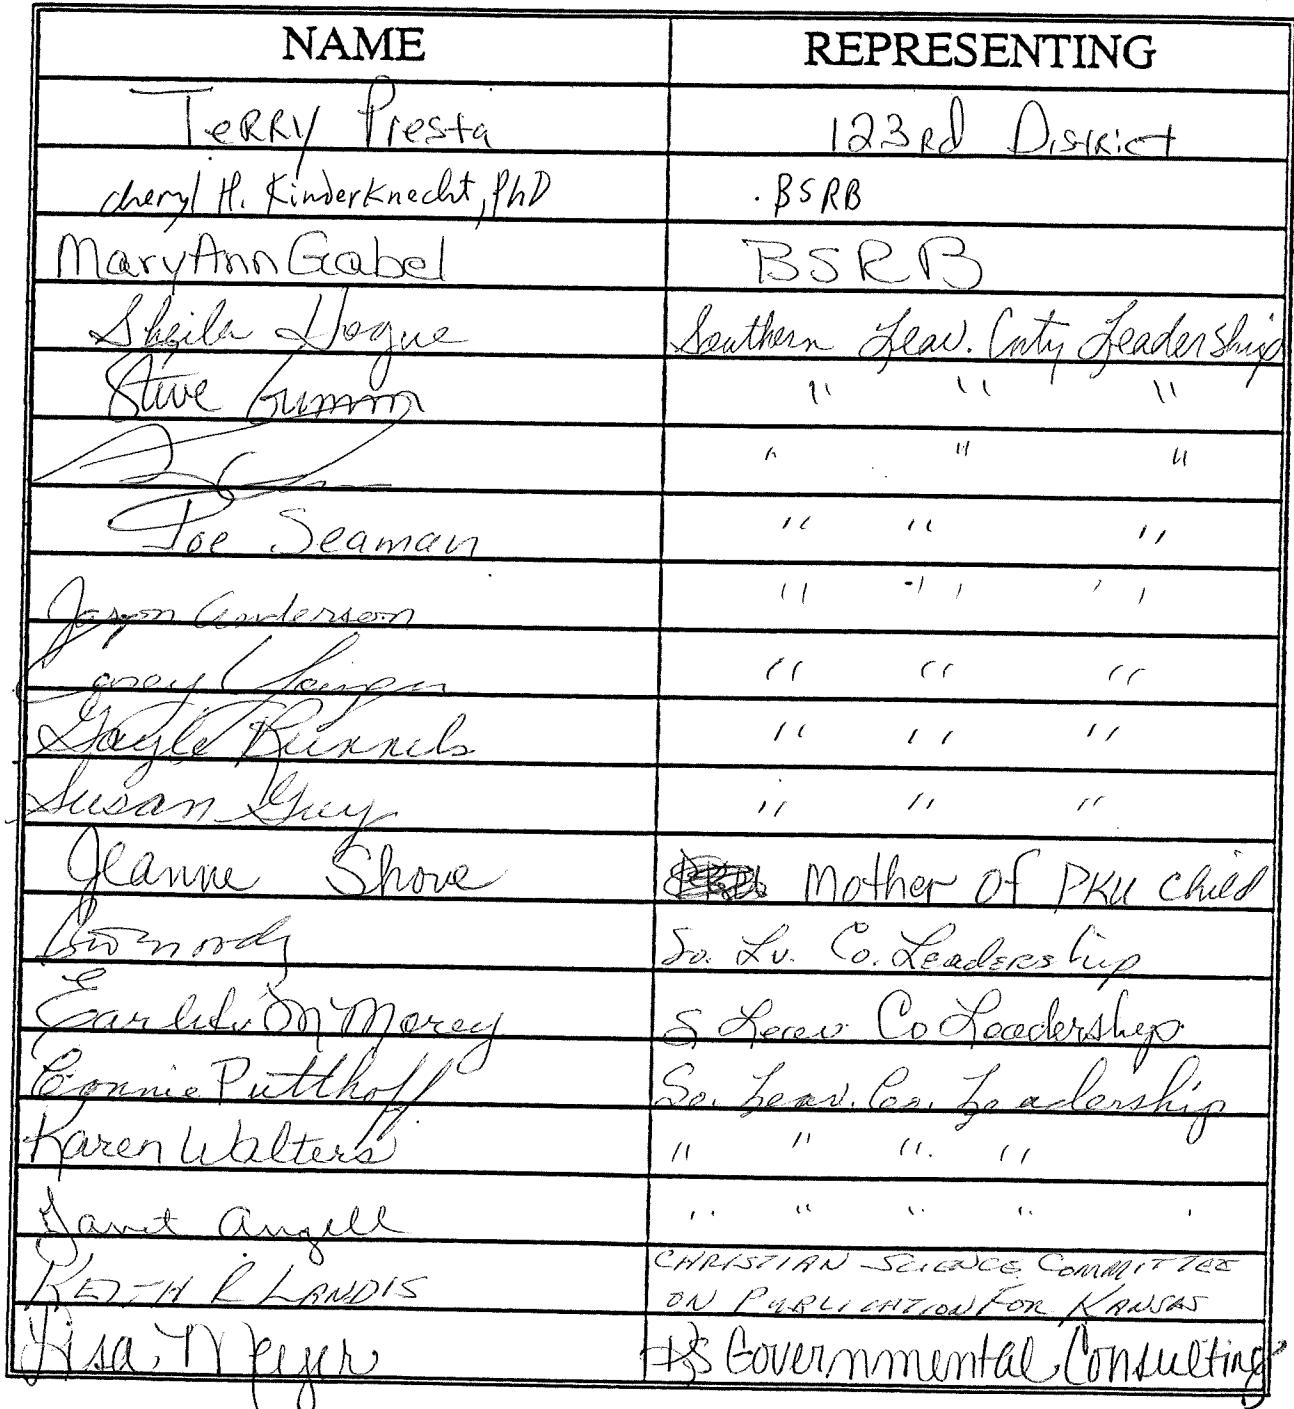 NAME REPRESENTING
Terry Presta 123rd District
Cheryl H. Kinderknecht, PhD . BSRB
Mary Ann Gabel BSRB
Sheila Hogue Southern Leav. Cnty Leadership
Steve Gumm " " "
" " "
Joe Seaman " " "
Jason Anderson " " "
" " "
Gayle Runnels " " "
Susan Guy " " "
Jeanne Shove Mother of PKU child
So. Lv. Co. Leadership
Morey S Leav Co Leadership
Connie Putthoff So. Leav. Co. Leadership
Karen Walters " " " "
Janet Angell " " " " "
KEITH R LANDIS CHRISTIAN SCIENCE COMMITTEE
ON PUBLICATION FOR KANSAS
Lisa Meyer Governmental Consulting